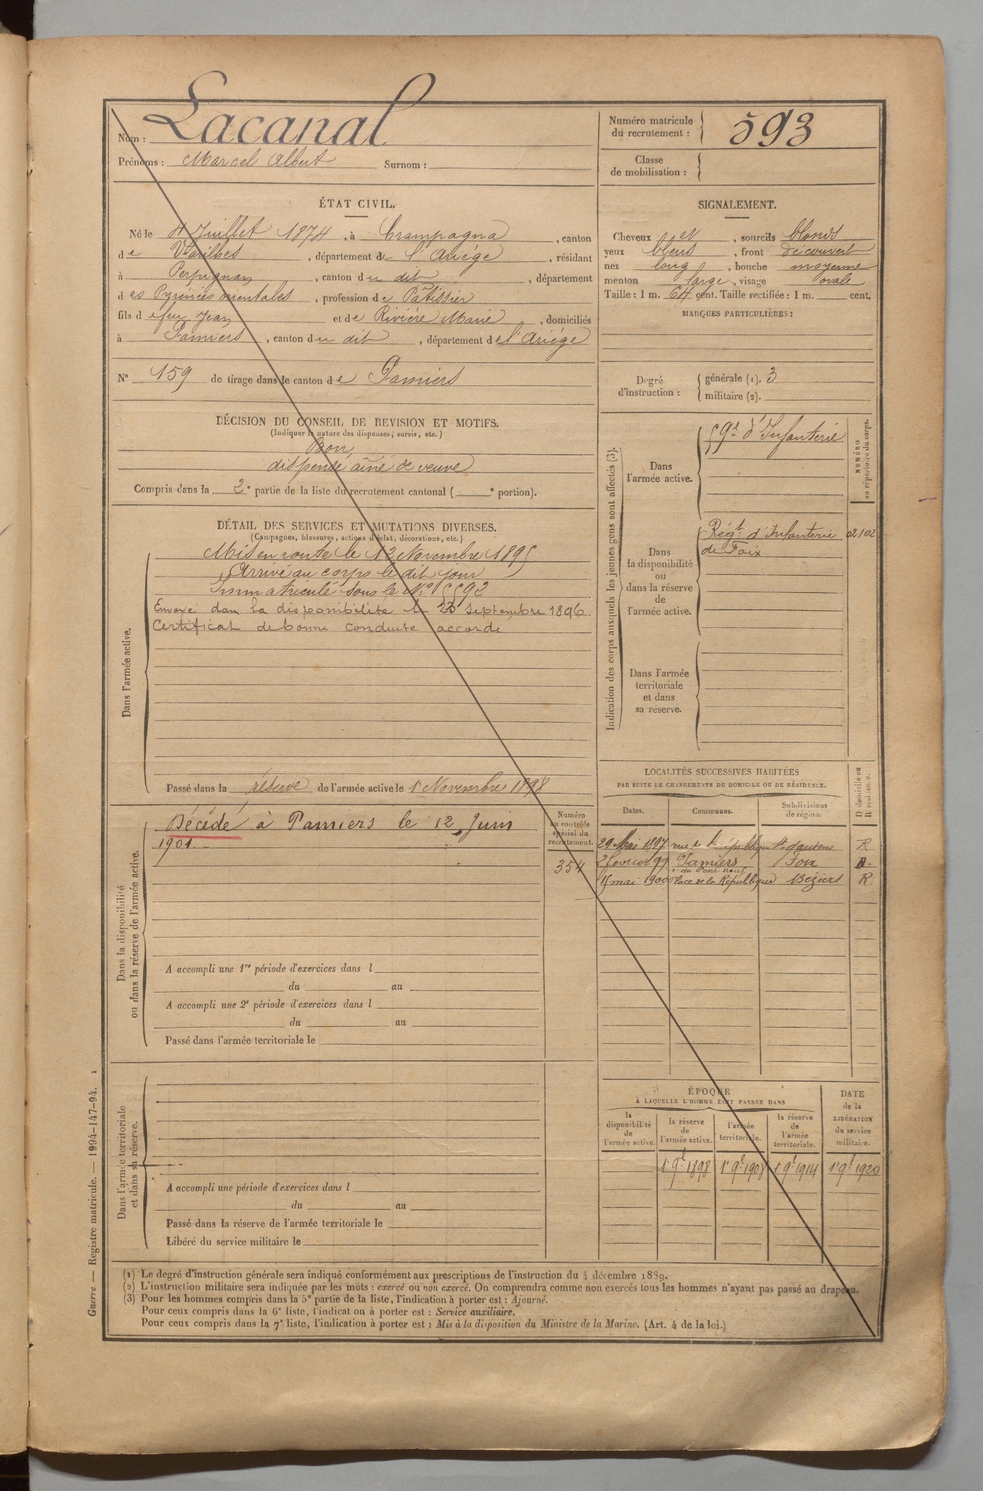 Nom : Lacanal
Prénoms : Marcel Albert Surnom :
Numéro matricule du recrutement : 593
Classe de mobilisation :
ÉTAT CIVIL.
Né le 4 Juillet 1874, à Crampagna, canton
de Varilhes, département de l'Ariége, résidant
à Perpignan, canton du dit, département
des Pyrénées orientales, profession de Pâtissier
fils de feu Jean et de Riviére Marie, domiciliés
à Pamiers, canton du dit, département de l'Ariége
N° 159 de tirage dans le canton de Pamiers
SIGNALEMENT.
Cheveux et, sourcils blonds
yeux bleus, front découvert
nez long, bouche moyenne
menton large, visage ovale
Taille : 1 m. 64 cent. Taille rectifiée : 1 m. cent.
MARQUES PARTICULIÈRES :
Degré d'instruction : générale (1). 3
militaire (2).
DÉCISION DU CONSEIL DE REVISION ET MOTIFS.
(Indiquer la nature des dispenses, sursis, etc.)
Bon
dispensé aîné de veuve
Compris dans la 2e partie de la liste du recrutement cantonal ( e portion).
DÉTAIL DES SERVICES ET MUTATIONS DIVERSES.
(Campagnes, blessures, actions d'éclat, décorations, etc.)
Dans l'armée active.
Mis en route le 12 Novembre 1895
Arrivé au corps le dit jour
Immatriculé sous le N°
Envoyé dans la disponibilité le 25 Septembre 1896
Certificat de bonne conduite accordé
Passé dans la réserve de l'armée active le 1 Novembre 1898
Indication des corps auxquels les jeunes gens sont affectés (3).
NUMÉRO au répertoire du corps.
Dans l'armée active.
59e d'Infanterie
Dans la disponibilité ou dans la réserve de l'armée active.
Régt d'Infanterie 02102
de Foix
Dans l'armée territoriale et dans sa réserve.
Dans la disponibilité ou dans la réserve de l'armée active.
Décédé à Pamiers le 12 Juin
1901
Numéro au contrôle spécial du recrutement.
354
A accompli une 1re période d'exercices dans l
du au
A accompli une 2e période d'exercices dans l
du au
Passé dans l'armée territoriale le
LOCALITÉS SUCCESSIVES HABITÉES
PAR SUITE DE CHANGEMENTS DE DOMICILE OU DE RÉSIDENCE.
Dates. Communes. Subdivisions de région. D. domicile ou R. résidence.
29 Mai 1897 rue de la République R
2 février 99 Pamiers Foix D.
r. du Pont Neuf
mai 1900 Place de la République Béziers R
Dans l'armée territoriale et dans sa réserve.
A accompli une période d'exercices dans l
du au
Passé dans la réserve de l'armée territoriale le
Libéré du service militaire le
ÉPOQUE
À LAQUELLE L'HOMME DOIT PASSER DANS
la disponibilité de l'armée active.
la réserve de l'armée active.
l'armée territoriale.
la réserve de l'armée territoriale.
DATE de la LIBÉRATION du service militaire.
1 9e 1898 1 9e 1908 1 9e 1914 1 9e 1920
(1) Le degré d'instruction générale sera indiqué conformément aux prescriptions de l'instruction du 4 décembre 1889.
(2) L'instruction militaire sera indiquée par les mots : exercé ou non exercé. On comprendra comme non exercés tous les hommes n'ayant pas passé au drapeau.
(3) Pour les hommes compris dans la 5e partie de la liste, l'indication à porter est : Ajourné.
Pour ceux compris dans la 6e liste, l'indication à porter est : Service auxiliaire.
Pour ceux compris dans la 7e liste, l'indication à porter est : Mis à la disposition du Ministre de la Marine. (Art. 4 de la loi.)
Guerre — Registre matricule. — 1994-147-94. 1